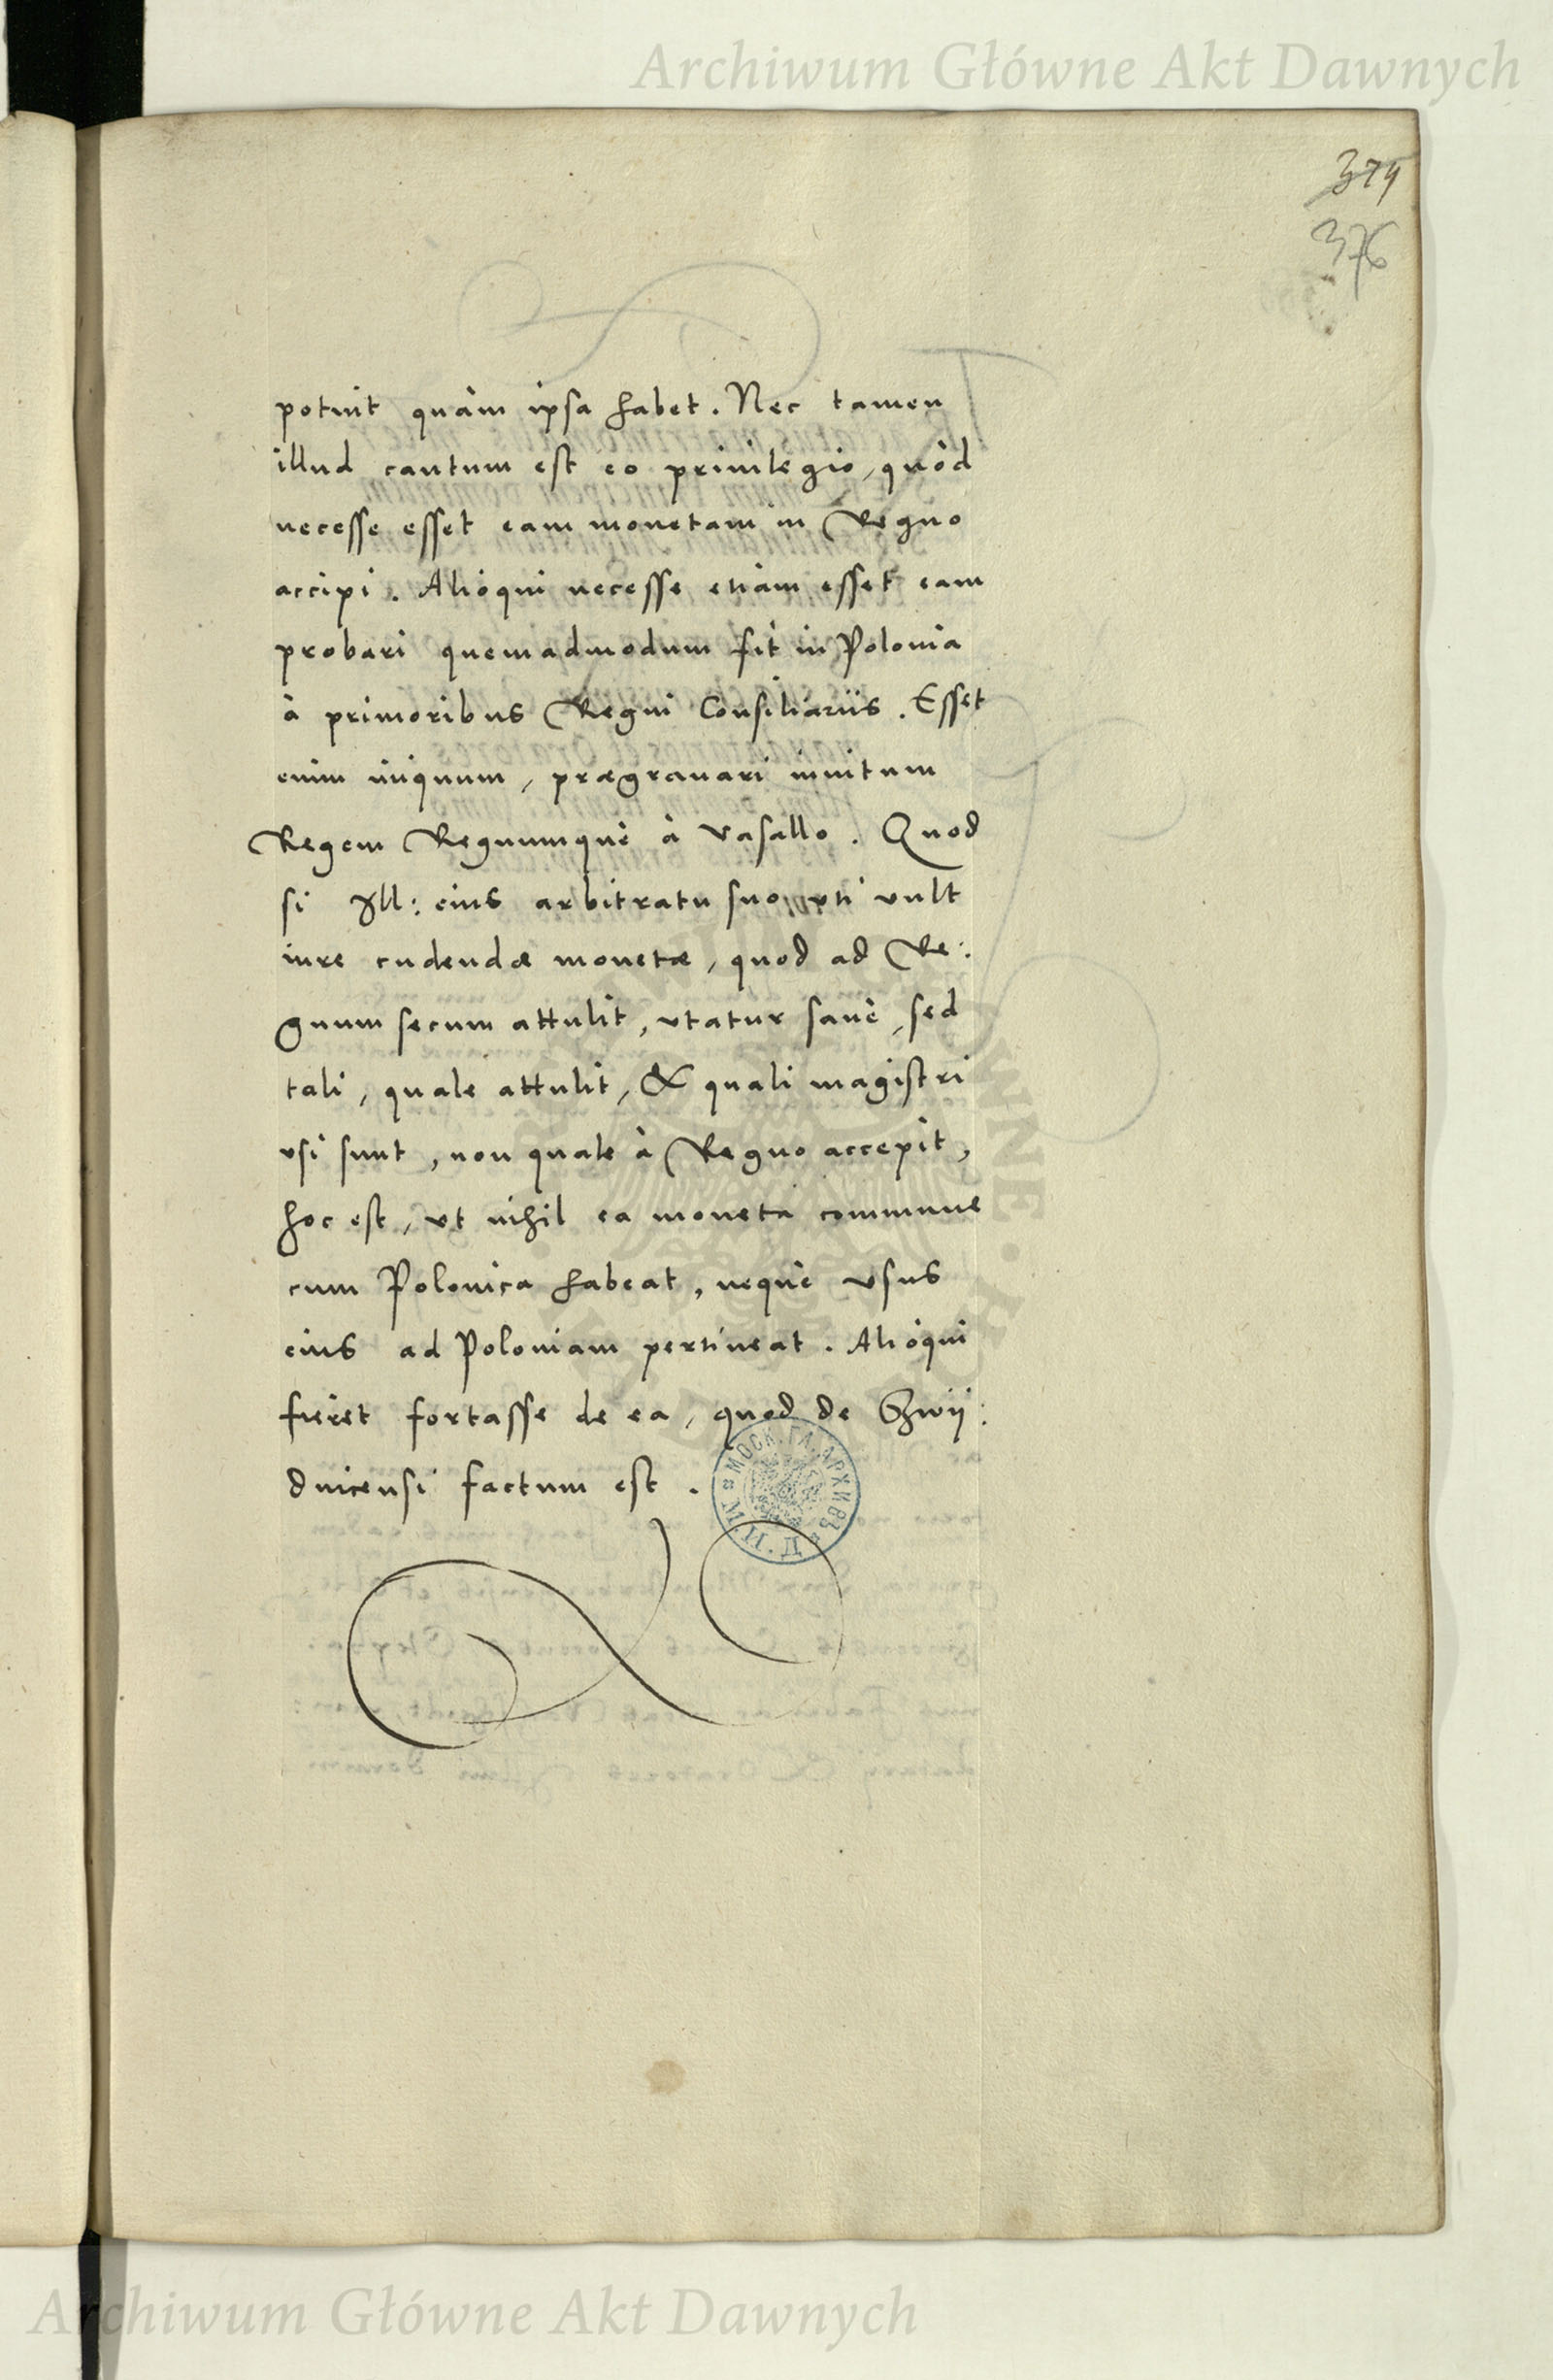 Archiwum Główne Akt Dawnych
376
potuit quàm ipsa habet. Nec tamen
illud cautum est eo priuilegio, quòd
necesse esset eam monetam in Regno
accipi. Alióqui necesse etiàm esset eam
probari quemadmodum fit in Polonia
à primoribus Regni Consiliariis. Esset
enim iniquum, prægrauari inuitum
Regem Regnumquè à vasallo. Quod
si Ill: eius arbitratu suo vti vult
iure cudendæ monetæ, quod ad Re:
gnum secum attulit, vtatur sanè, sed
tali, quale attulit, & quali magistri
vsi sunt, non quale à Regno accepit,
hoc est, vt nihil ea moneta commune
cum Polonica habeat, nequè vsus
eius ad Poloniam pertineat. Alióqui
fieret fortasse de ea, quod de Shwij:
dnicensi factum est.
МОСК. ГЛ. АРХИВЪ
М. И. Д.
Archiwum Główne Akt Dawnych